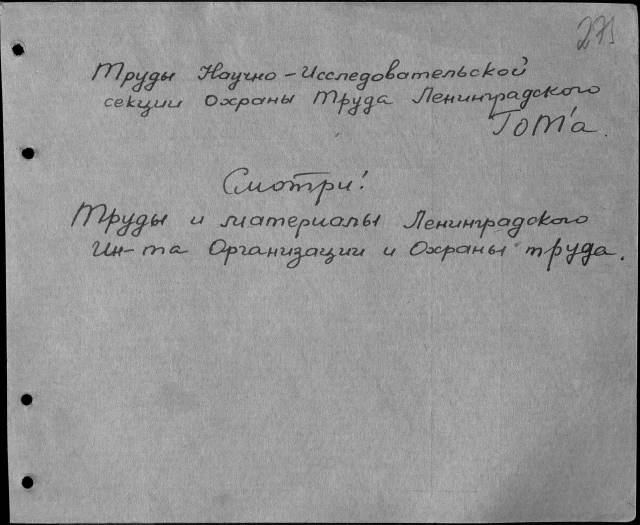 271
Труды Научно-Исследовательской
секции Охраны Труда Ленинградского
ГОМ'а.
Смотри!
Труды и материалы Ленинградского
Ин-та Организации и Охраны труда.